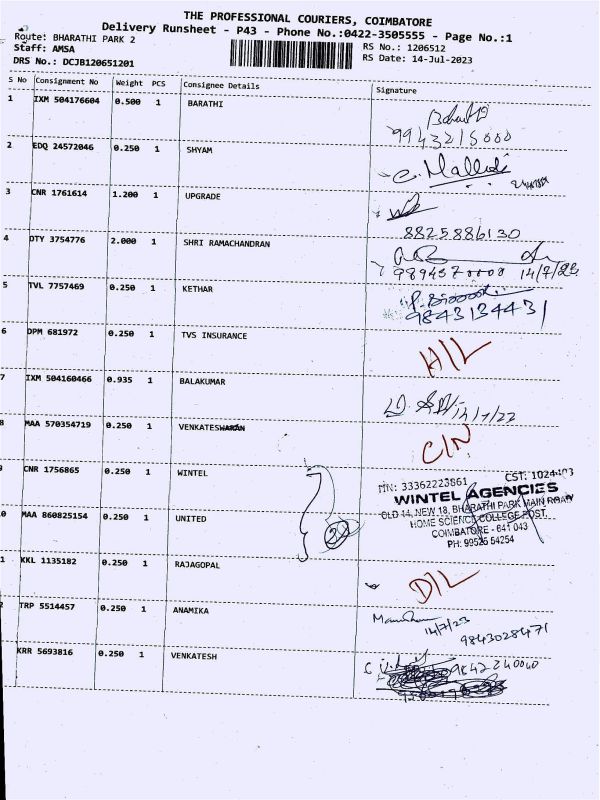 THE PROFESSIONAL COURIERS, COIMBATORE
Delivery Runsheet - P43 - Phone No.:0422-3505555 - Page No.:1
Route: BHARATHI PARK 2
RS No.: 1206512
Staff: AMSA
RS Date: 14-Jul-2023
DRS No.: DCJB120651201
S No Consignment No Weight PCS Consignee Details Signature
1 IXM 504176604 0.500 1 BARATHI
9943215000
2 EDQ 24572046 0.250 1 SHYAM
3 CNR 1761614 1.200 1 UPGRADE
8825886130
4 DTY 3754776 2.000 1 SHRI RAMACHANDRAN
9894570000 14/7/23
5 TVL 7757469 0.250 1 KETHAR
9843134431
6 DPM 681972 0.250 1 TVS INSURANCE
H/L
7 IXM 504160466 0.935 1 BALAKUMAR
14/7/22
8 MAA 570354719 0.250 1 VENKATESWARAN
C/N
CNR 1756865 0.250 1 WINTEL
33362223861 CST:
WINTEL AGENCIES
0 MAA 860825154 0.250 1 UNITED
OLD 14, NEW 18, BHARATHI PARK MAIN ROAD
HOME SCIENCE COLLEGE POST,
COIMBATORE - 641 043
PH: 99526 54254
1 KKL 1135182 0.250 1 RAJAGOPAL
D/L
2 TRP 5514457 0.250 1 ANAMIKA
14/7/23
9843028471
KRR 5693816 0.250 1 VENKATESH
9842240040